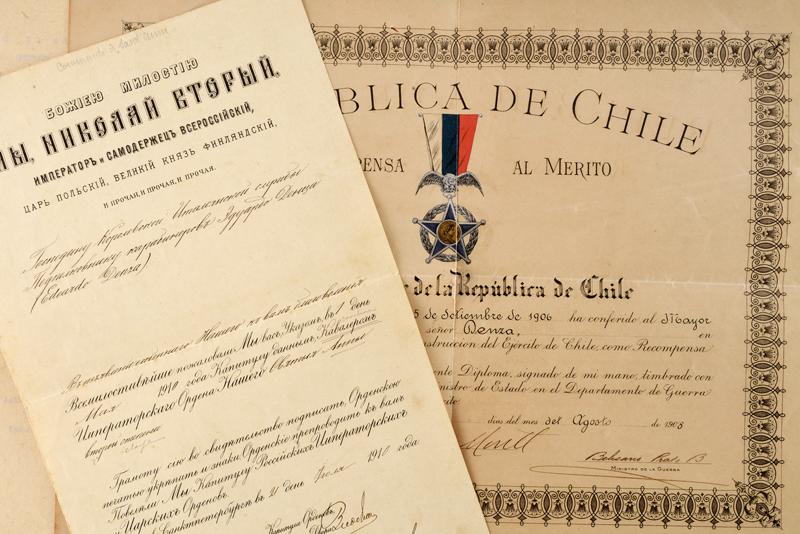 БОЖІЕЮ МИЛОСТІЮ
МЫ, НИКОЛАЙ ВТОРЫЙ,
ИМПЕРАТОРЪ и САМОДЕРЖЕЦЪ ВСЕРОССІЙСКІЙ,
ЦАРЬ ПОЛЬСКІЙ, ВЕЛИКІЙ КНЯЗЬ ФИНЛЯНДСКІЙ,
И ПРОЧАЯ, И ПРОЧАЯ, И ПРОЧАЯ.
Господину Королевской Итальянской службы
Подполковнику карабинеровъ Эдуардо Денца
(Edoardo Denza)
Нашего къ вамъ благоволенія
Всемилостивѣйше пожаловали Мы васъ, Указомъ въ 1 день
Мая 1910 года Капитулу даннымъ, Кавалеромъ
Императорскаго Ордена Нашего Святыя Анны
второй степени
Грамоту сію во свидѣтельство подписать, Орденскою
печатью укрѣпить и знаки Орденскіе препроводить къ вамъ
Повелѣли Мы Капитулу Россійскихъ Императорскихъ
и Царскихъ Орденовъ.
Санктпетербургѣ въ 21 день Іюля 1910 года
BLICA DE CHILE
PENSA AL MERITO
e de la República de Chile
5 de Setiembre de 1906 ha conferido al Mayor
señor Denza, en
strucción del Ejército de Chile, como Recompensa
ente Diploma, signado de mi mano, timbrado con
nistro de Estado en el Departamento de Guerra
días del mes del Agosto de 1908
MINISTRO DE LA GUERRA